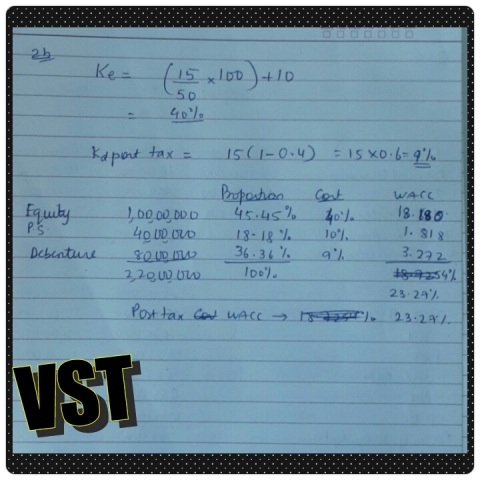 2b
Ke = (15/50 × 100) + 10
= 40%
Kd post tax = 15(1-0.4) = 15 × 0.6 = 9%
Proportion Cost WACC
Equity 1,00,00,000 45.45% 40% 18.180
P.S 40,00,000 18.18% 10% 1.818
Debenture 80,00,000 36.36% 9% 3.272
2,20,00,000 100% 18.7254%
23.29%
Post tax Cost WACC → % 23.29%
VST